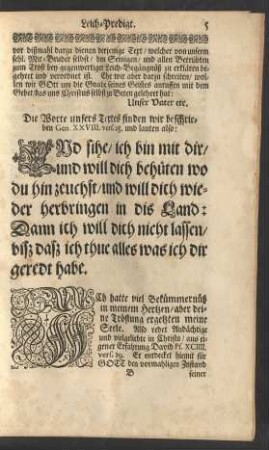 Leich-Predigt. 5
vor dißmahl darzu dienen derjenige Text/ welcher von unserm
sehl. Mit-Bruder selbst/ den Seinigen/ und allen Betrübten
zum Trost bey gegenwertiger Leich-Begängnüß zu erklären be-
gehret und verordnet ist. Ehe wir aber darzu schreiten/ wol-
len wir Gott um die Gnade seines Geistes anruffen mit dem
Gebet das uns Christus selbst zu Beten gelehret hat:
Unser Vater etc.
Die Worte unsers Textes finden wir beschrie-
ben Gen. XXVIII. vers. 15. und lauten also:
UNd sihe/ ich bin mit dir/
und will dich behüten wo
du hin zeuchst/ und will dich wie-
der herbringen in dis Land:
Dann ich will dich nicht lassen/
bisz dasz ich thue alles was ich dir
geredt habe.
ICh hatte viel Bekümmernüß
in meinem Hertzen/ aber dei-
ne Tröstung ergetzten meine
Seele. Also redet Andächtige
und vielgeliebte in Christo/ aus ei-
gener Erfahrung David Ps. XCIIII.
vers. 19. Er entdecket hiemit für
GOTT den vormahligen Zustand
B seiner